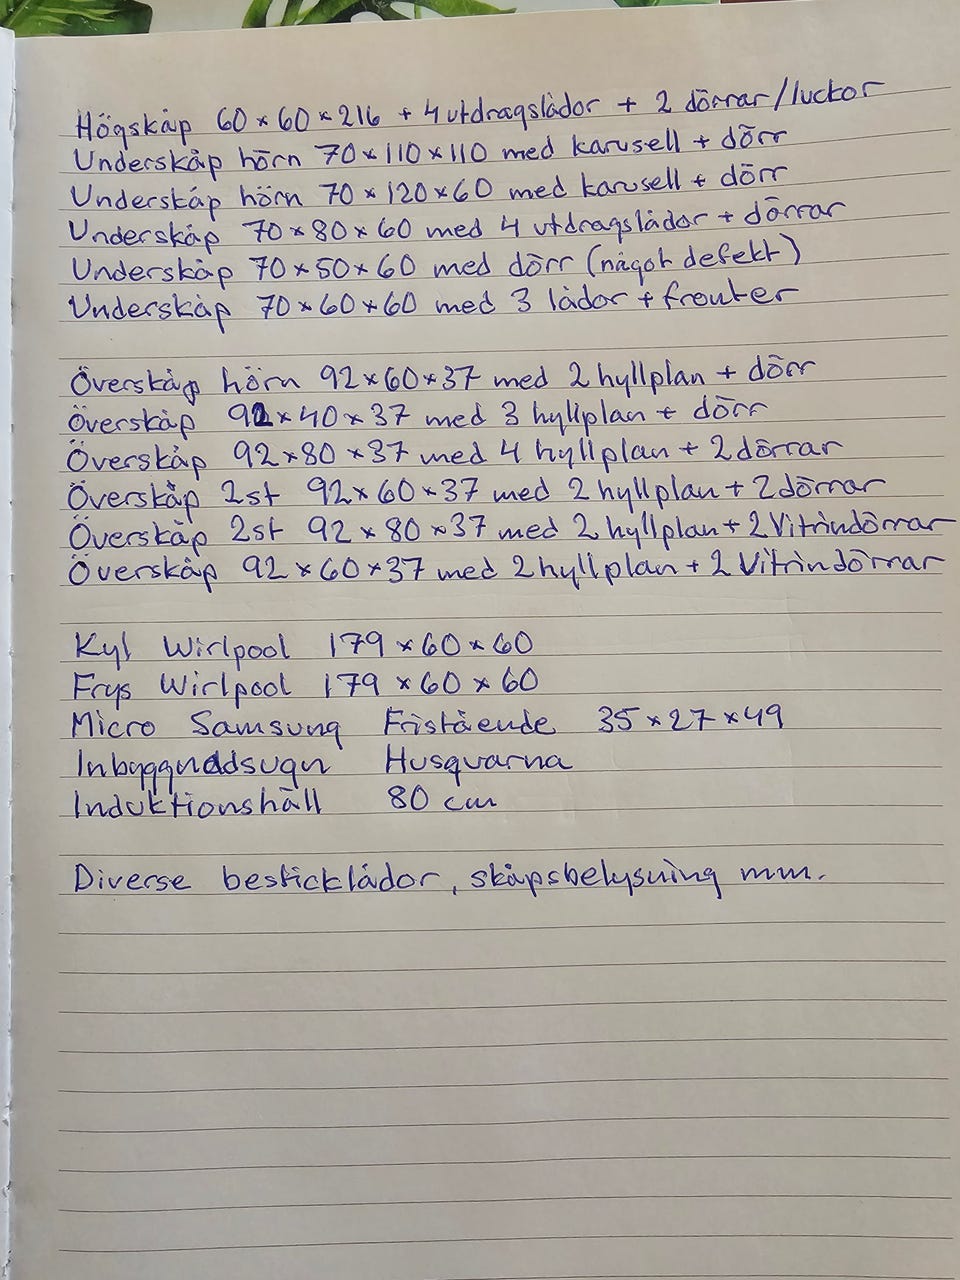 Högskåp 60×60×216 + 4 utdragslådor + 2 dörrar/luckor
Underskåp hörn 70×110×110 med karusell + dörr
Underskåp hörn 70×120×60 med karusell + dörr
Underskåp 70×80×60 med 4 utdragslådor + dörrar
Underskåp 70×50×60 med dörr (något defekt)
Underskåp 70×60×60 med 3 lådor + fronter
Överskåp hörn 92×60×37 med 2 hyllplan + dörr
Överskåp 92×40×37 med 3 hyllplan + dörr
Överskåp 92×80×37 med 4 hyllplan + 2 dörrar
Överskåp 2st 92×60×37 med 2 hyllplan + 2 dörrar
Överskåp 2st 92×80×37 med 2 hyllplan + 2 Vitrindörrar
Överskåp 92×60×37 med 2 hyllplan + 2 Vitrindörrar
Kyl Wirlpool 179×60×60
Frys Wirlpool 179×60×60
Micro Samsung Fristående 35×27×49
Inbyggnadsugn Husqvarna
Induktionshäll 80 cm
Diverse besticklådor, skåpsbelysning mm.